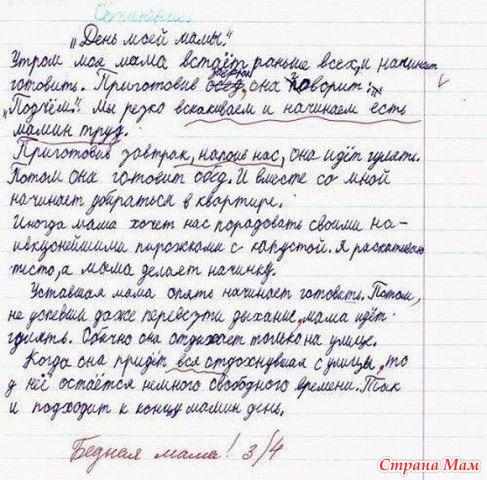 Сочинение.
„День моей мамы."
Утром моя мама встаёт раньше всех, и начинает
готовить. Приготовив завтрак, она говорит:
„Подъём!" Мы резко вскакиваем и начинаем есть
мамин труд.
Приготовив завтрак, напоив нас, она идёт гулять.
Потом она готовит обед. И вместе со мной
начинает убираться в квартире.
Иногда мама хочет нас порадовать своими на-
ивкуснейшими пирожками с капустой. Я раскатываю
тесто, а мама делает начинку.
Уставшая мама опять начинает готовить. Потом,
не успевши даже перевезти дыхание, мама идёт
гулять. Обычно она отдыхает только на улице.
Когда она придёт вся отдохнувшая с улицы, то
у неё остаётся немного свободного времени. Так
и подходит к концу мамин день.
Бедная мама! 3/4
Страна Мам